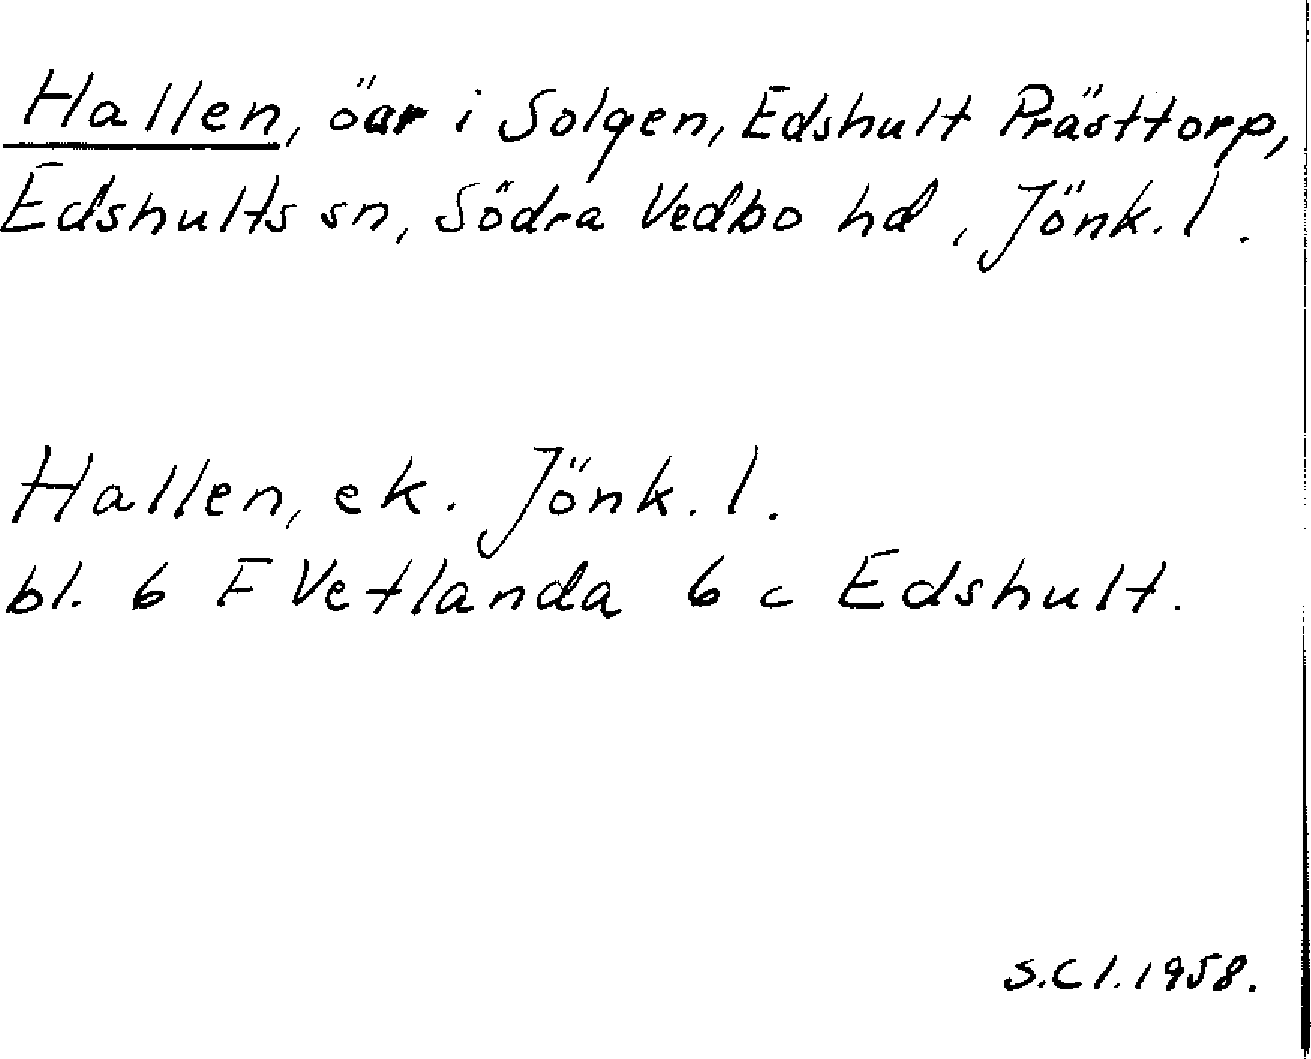 Hallen, öar i Solgen, Edshult Prästtorp,
Edshults sn, Södra Vedbo hd, Jönk. l.
Hallen, ek. Jönk. l.
bl. 6 F Vetlanda 6 c Edshult.
S.Cl. 1958.